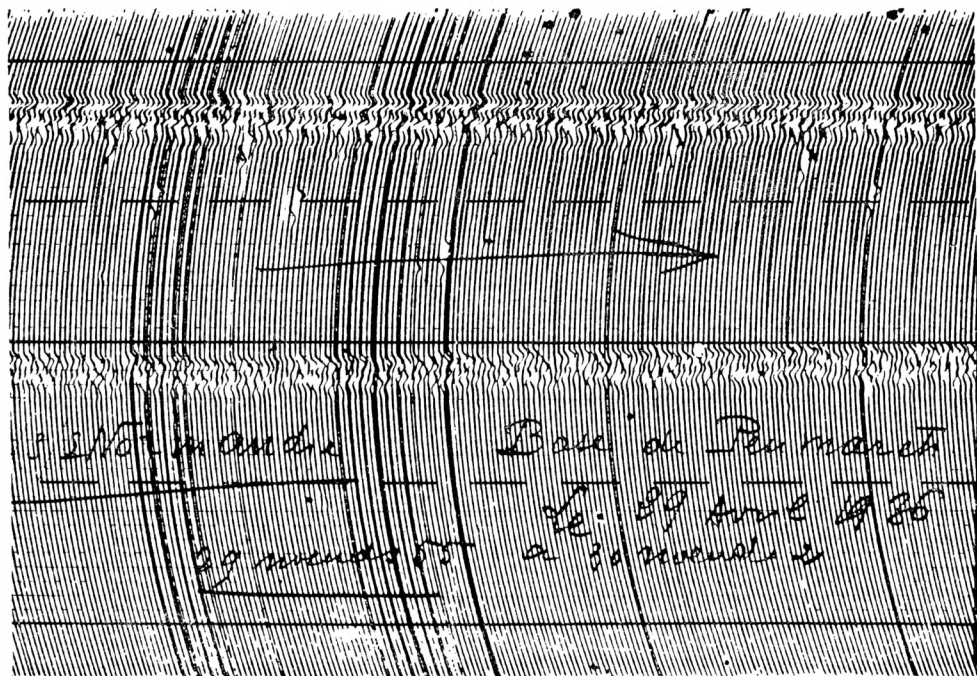 Normandie Base de Penmarch
Le 29 Avril
29 noeuds 55 a 30 noeuds 2